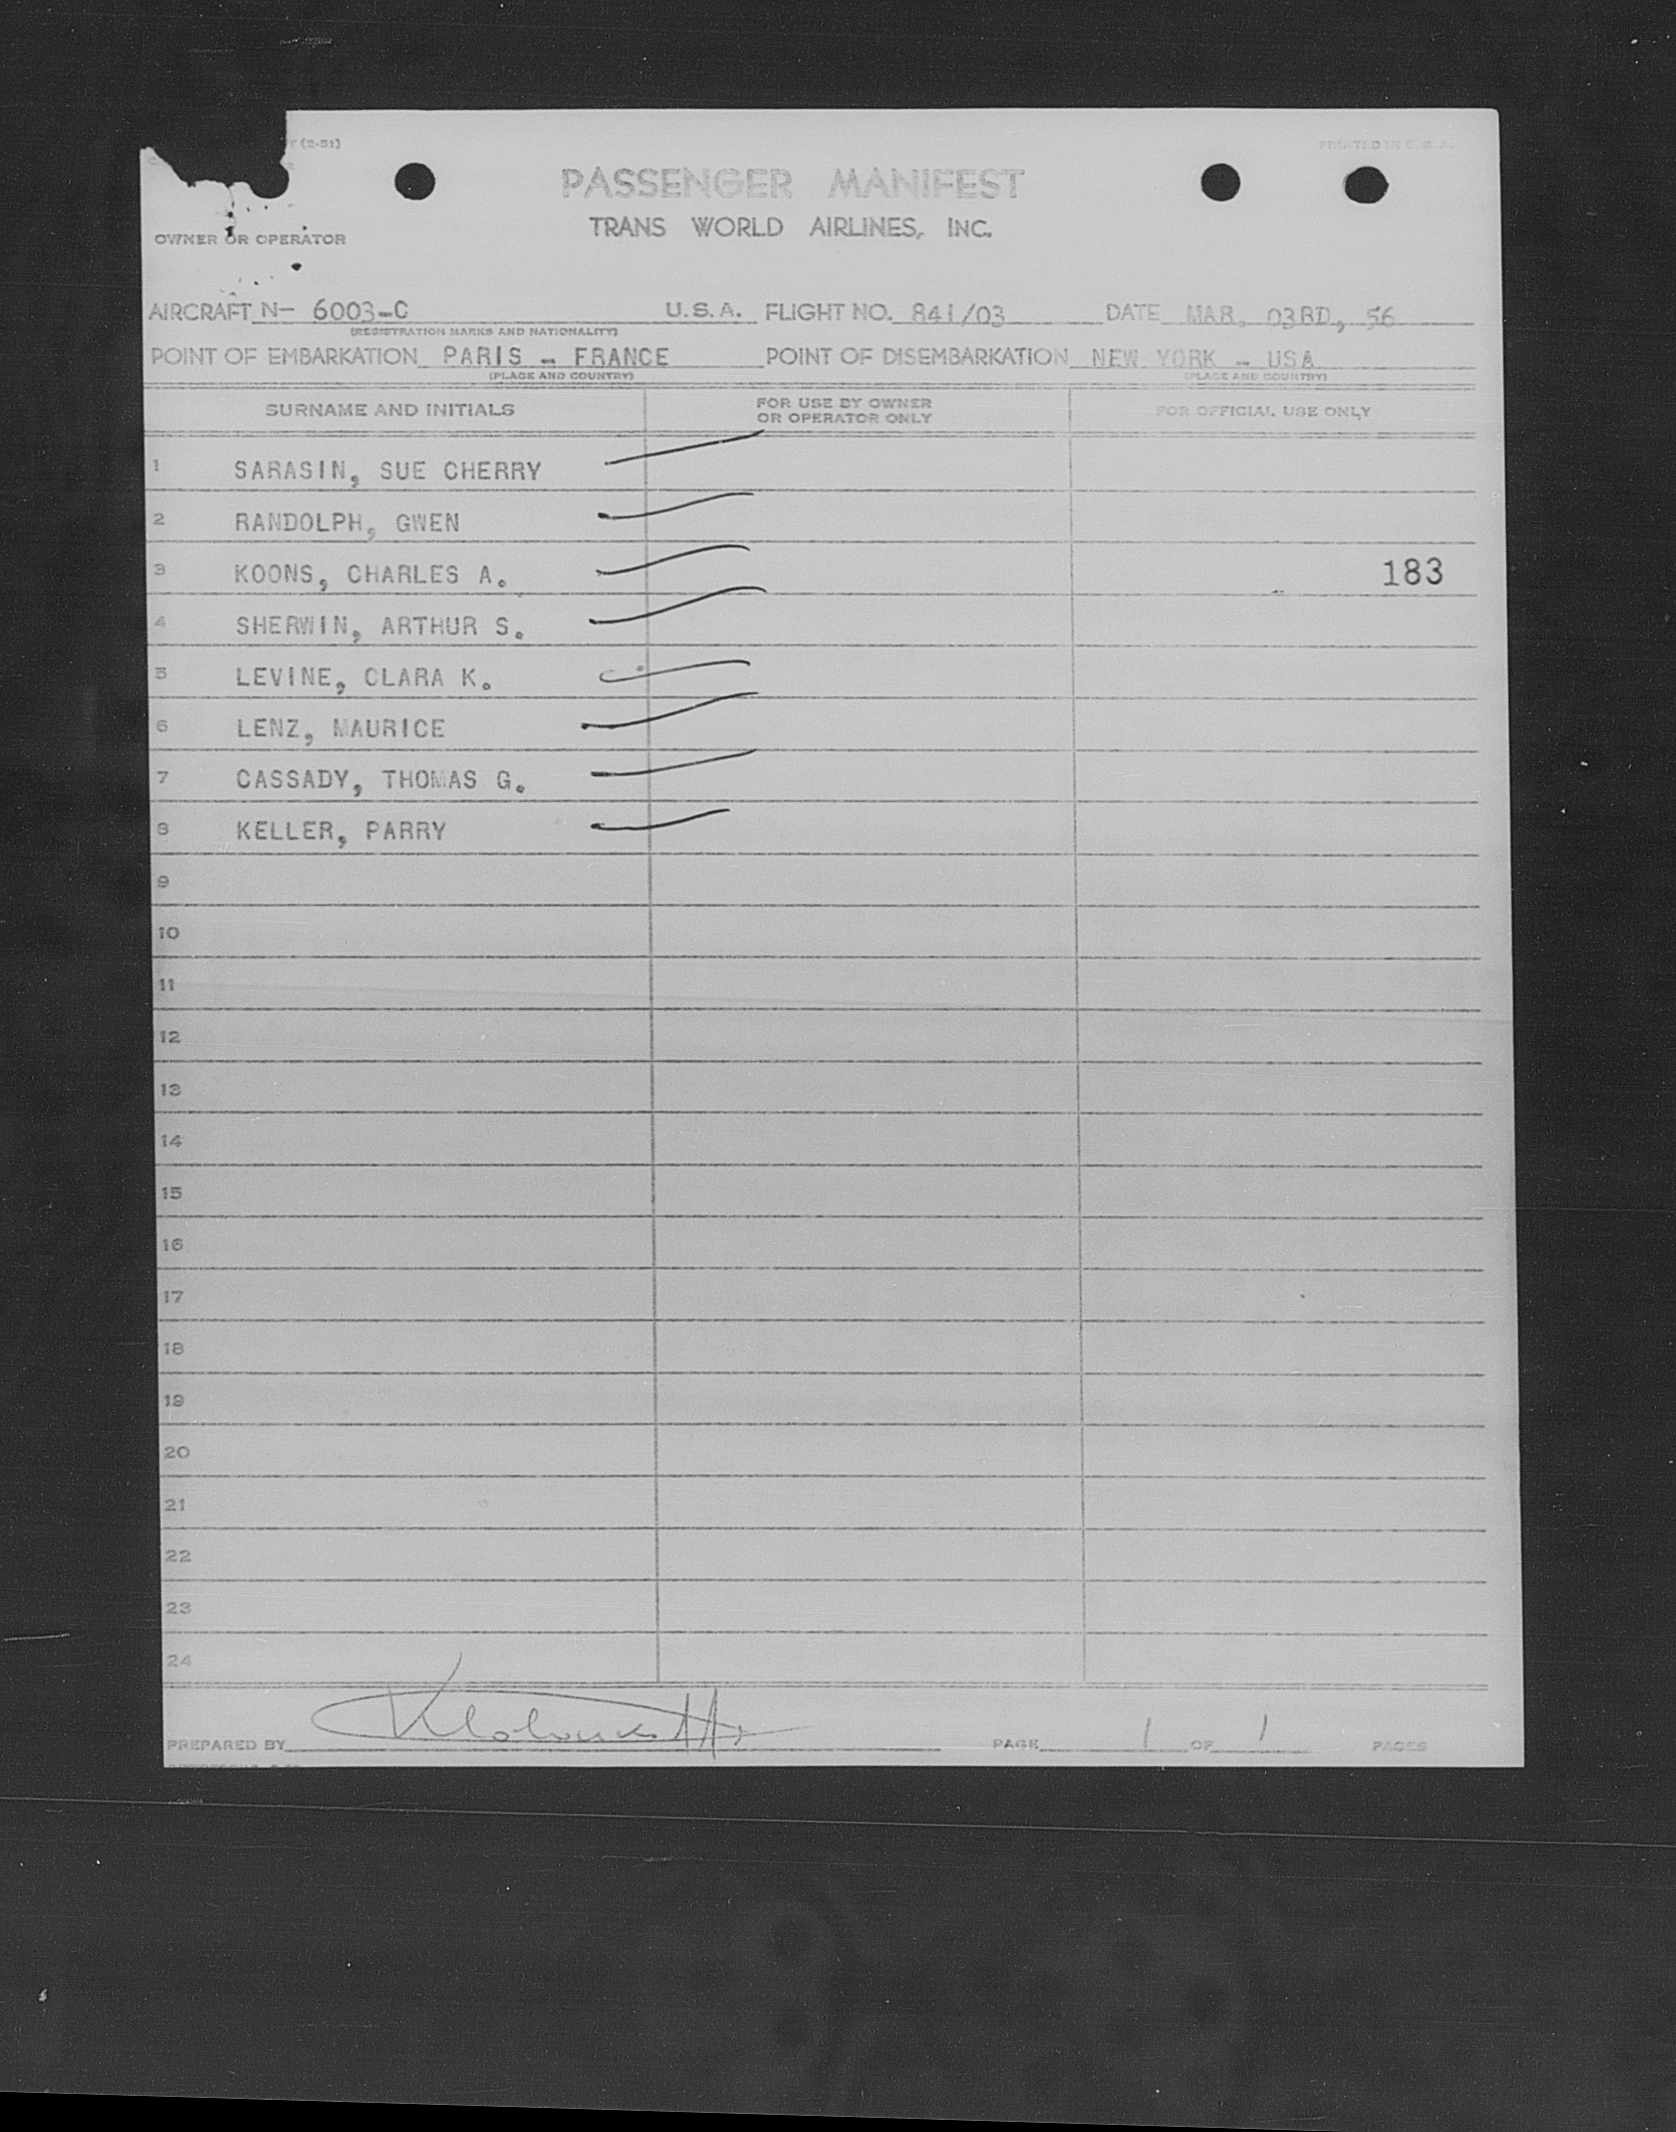 (2-51)
PRINTED IN U. S. A.
PASSENGER MANIFEST
TRANS WORLD AIRLINES, INC.
OWNER OR OPERATOR
AIRCRAFT N- 6003-C U.S.A. FLIGHT NO. 841/03 DATE MAR. 03RD, 56
(REGISTRATION MARKS AND NATIONALITY)
POINT OF EMBARKATION PARIS - FRANCE POINT OF DISEMBARKATION NEW YORK - USA
(PLACE AND COUNTRY) (PLACE AND COUNTRY)
SURNAME AND INITIALS FOR USE BY OWNER OR OPERATOR ONLY FOR OFFICIAL USE ONLY
1 SARASIN, SUE CHERRY
2 RANDOLPH, GWEN
3 KOONS, CHARLES A. 183
4 SHERWIN, ARTHUR S.
5 LEVINE, CLARA K.
6 LENZ, MAURICE
7 CASSADY, THOMAS G.
8 KELLER, PARRY
9
10
11
12
13
14
15
16
17
18
19
20
21
22
23
24
PREPARED BY PAGE 1 OF 1 PAGES